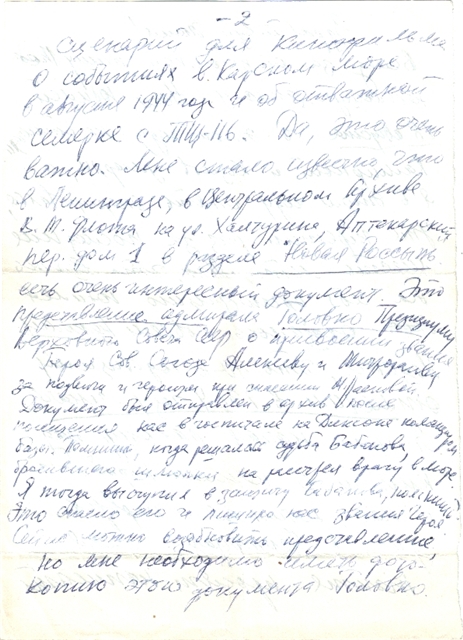 - 2
Сценарий для кинофильма
о событиях в Карском море
в августе 1944 года и об отважной
семерке с ТЩ-116. Да, это очень
важно. Мне стало известно что
в Ленинграде, в Центральном Архиве
В. М. Флота на ул. Халтурина, Аптекарский
пер. дом 1 в разделе "Новая Россыпь
есть очень интересный документ. Это
представление адмирала Головко Президиуму
Верховного Совета СССР о присвоении звания
Героя Сов. Союза Алексееву и
за подвиги и героизм при спасении
Документ был отправлен в архив после
посещения нас в госпитале на Диксоне командиром
базы. Помнишь, когда решалась судьба Бабанова,
бросившего шлюпки на растрел врагу в море.
Я тогда выступил в защиту Бабанова, помнишь.
Это спасло его и лишило нас звания Героя.
Сейчас можно возобновить представление
но мне необходимо иметь фото-
копию этого документа Головко.